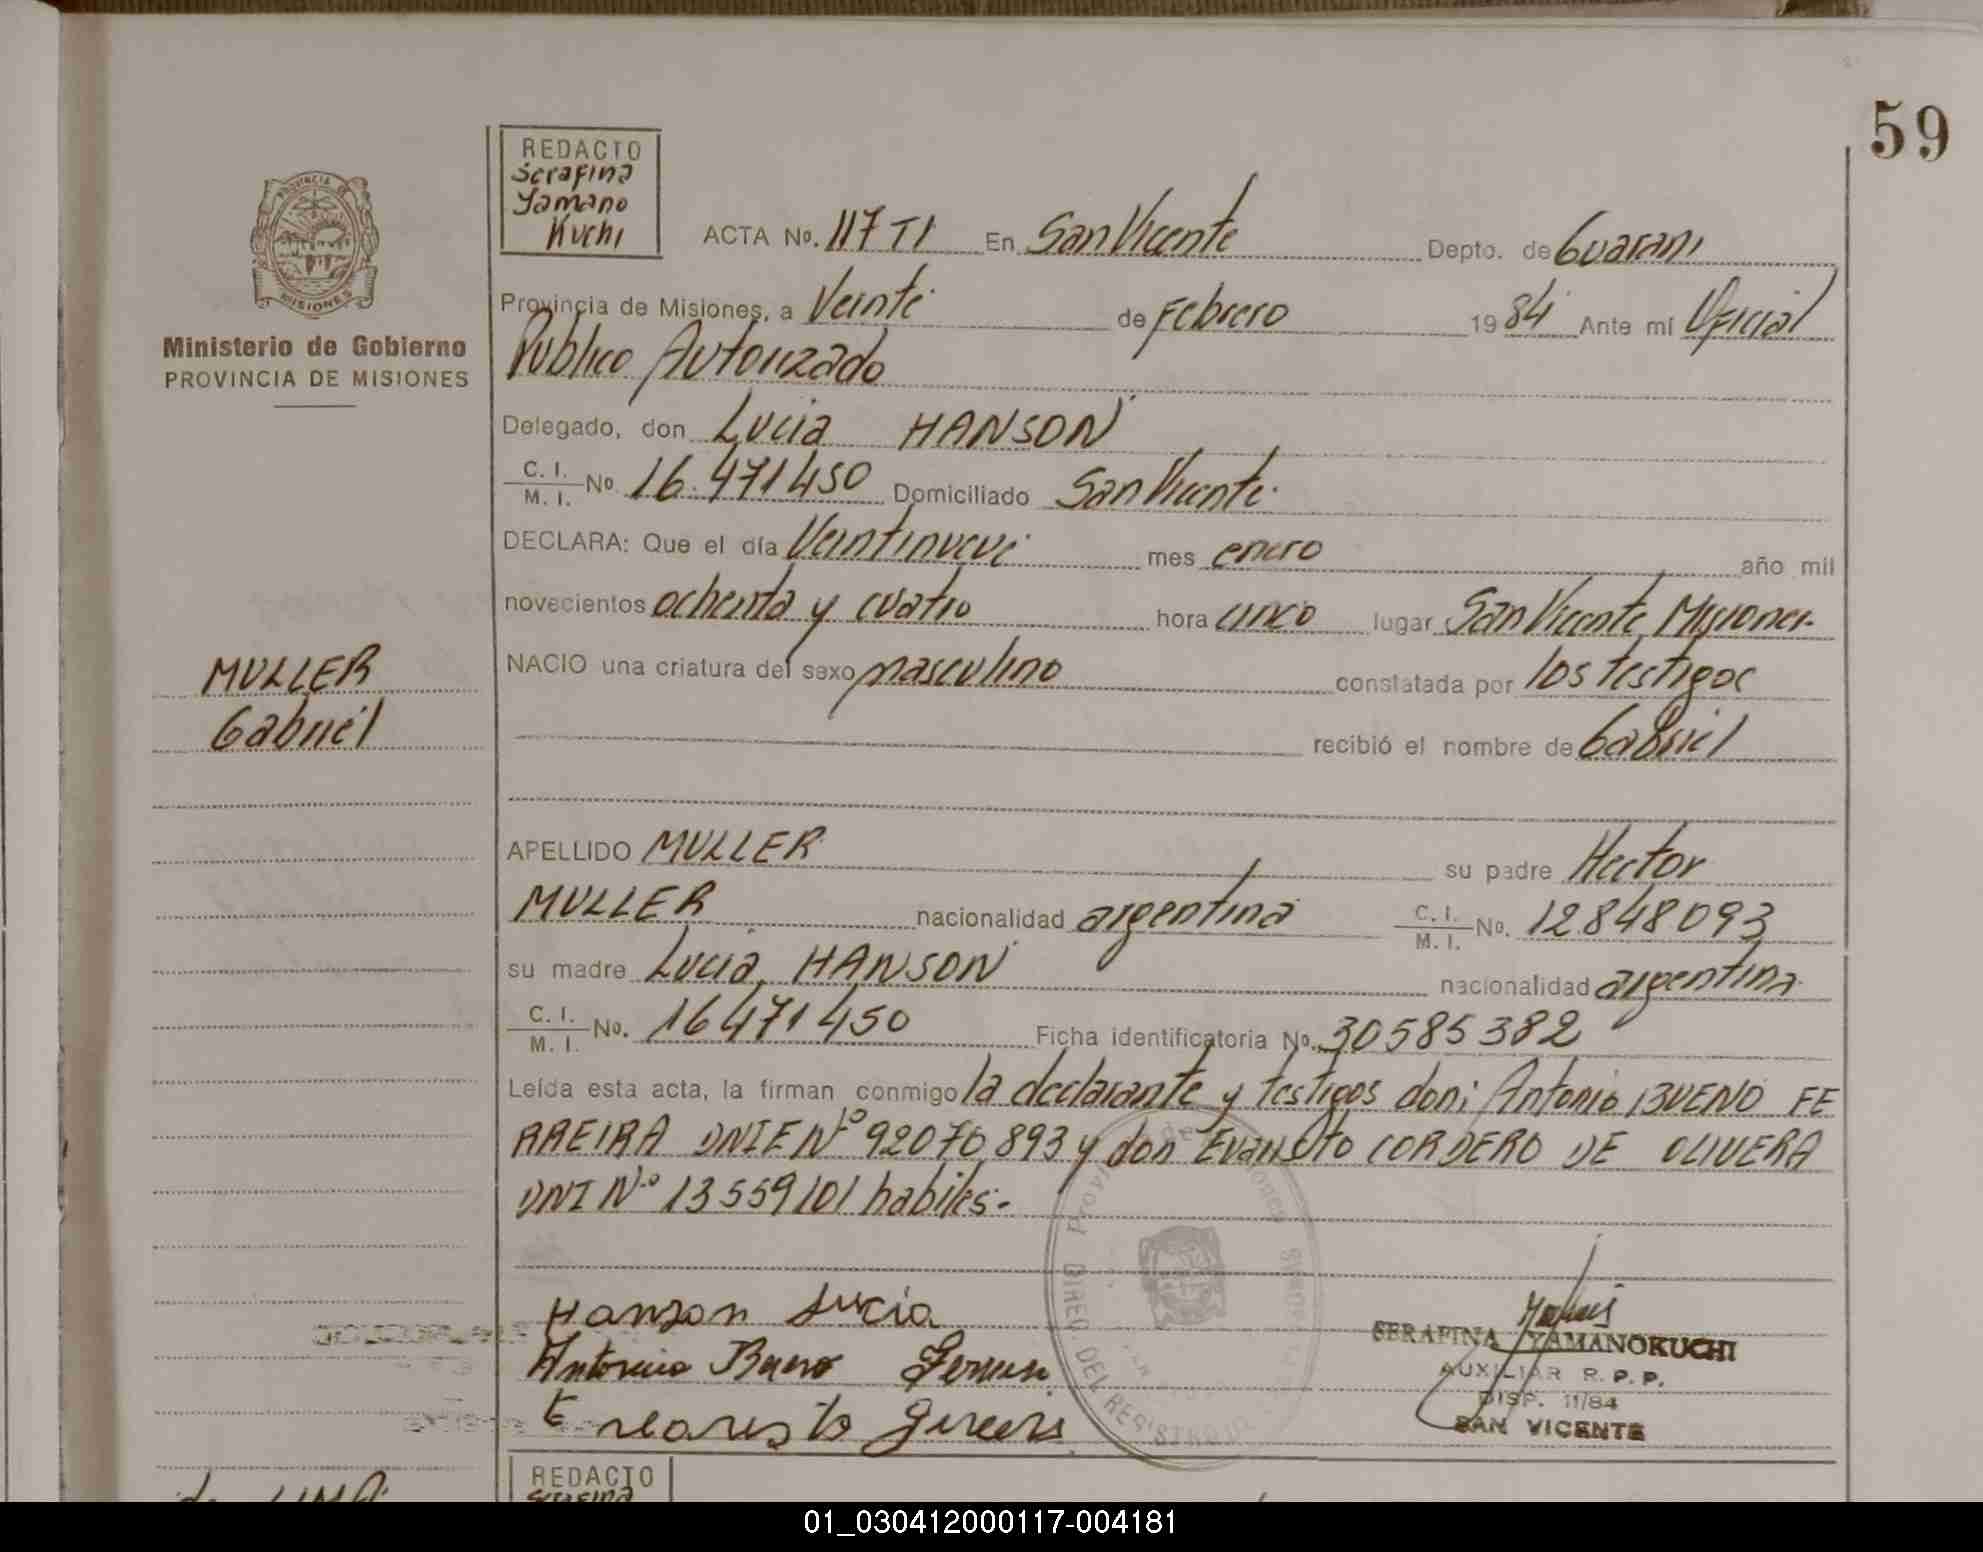 59
REDACTO
Serafina
Yamano
Kuchi
PROVINCIA DE
MISIONES
Ministerio de Gobierno
PROVINCIA DE MISIONES
ACTA No. 117 TI En San Vicente Depto. de Guarani
Provincia de Misiones, a Veinte de Febrero 1984 Ante mí Oficial
Publico Autorizado
Delegado, don Lucia HANSON
C. I. / M. I. No. 16.471450 Domiciliado San Vicente.
DECLARA: Que el día Veintinueve mes enero año mil
novecientos ochenta y cuatro hora cinco lugar San Vicente, Misiones.
NACIO una criatura del sexo masculino constatada por los testigos
recibió el nombre de Gabriel
MULLER
Gabriel
APELLIDO MULLER su padre Hector
MULLER nacionalidad argentina C. I. / M. I. No. 12848093
su madre Lucia HANSON nacionalidad argentina
C. I. / M. I. No. 16471450 Ficha identificatoria No. 30585382
Leída esta acta, la firman conmigo la declarante y testigos don: Antonio BUENO FE
RREIRA DNIE Nº 92070893 y don Evaristo CORDERO DE OLIVERA
DNI Nº 13559101 habiles.-
Hanson Lucia
Antonio Bueno
SERAFINA YAMANOKUCHI
AUXILIAR R. P. P.
DISP. 11/84
SAN VICENTE
DIREC. DEL REGISTRO
REDACTO
Serafina
de LIMA
01_030412000117-004181